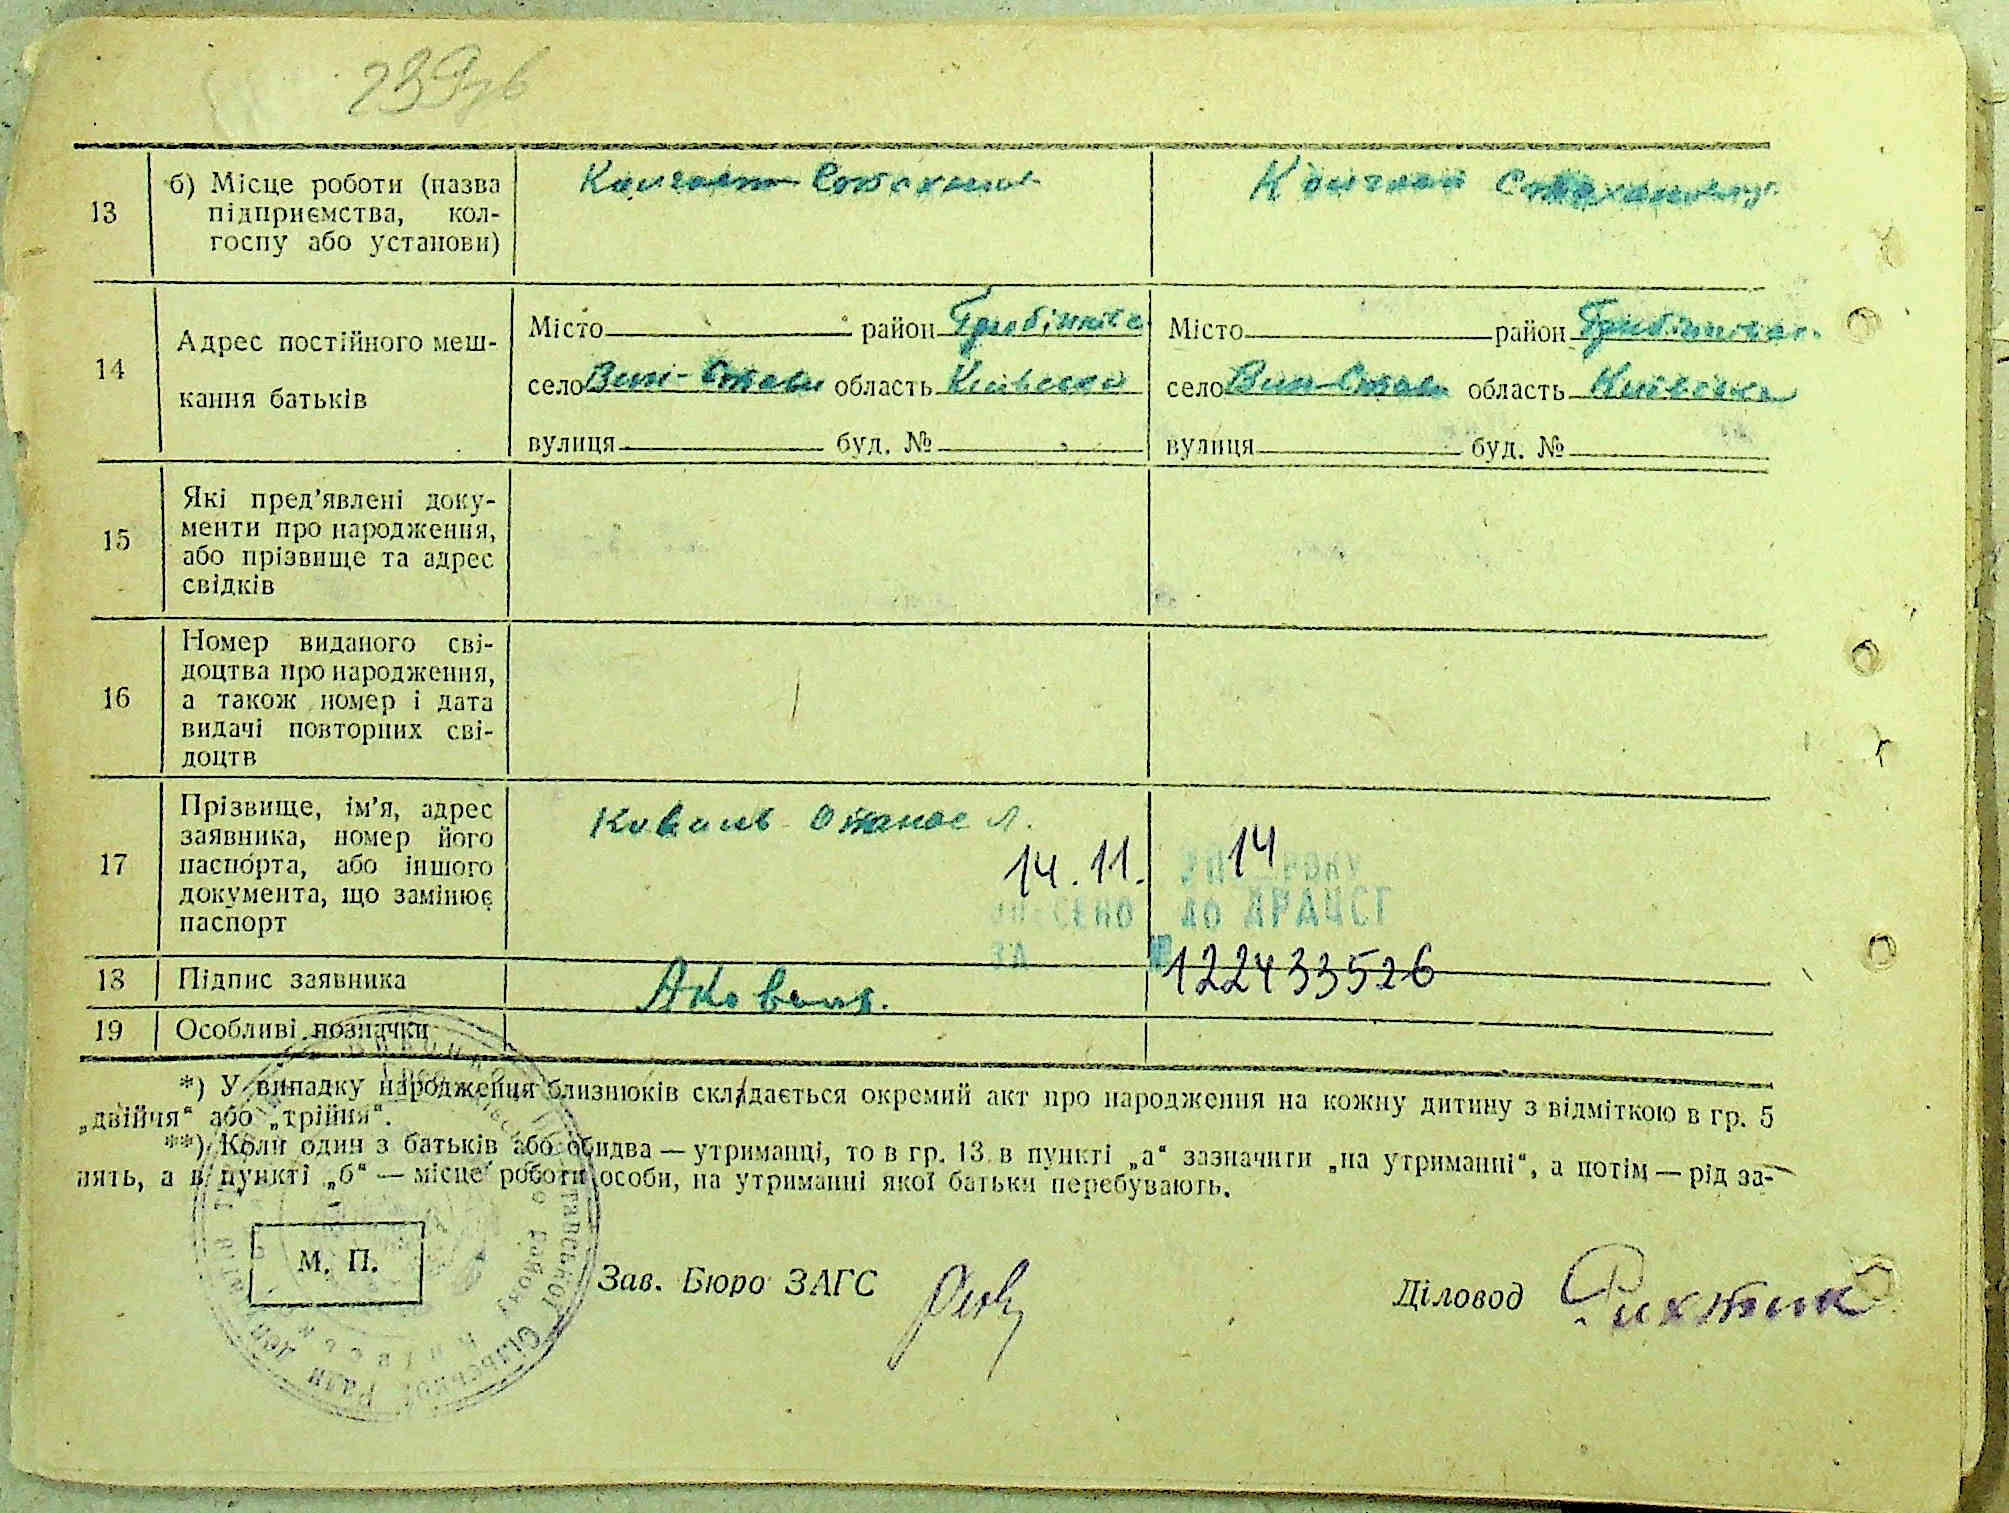 239зв
13
б) Місце роботи (назва
підприємства, кол-
госпу або установи)
14
Адрес постійного меш-
кання батьків
Місто район
село Вин-Стави область Київська
вулиця буд. №
Місто район
село Вин-Стави область Київська
вулиця буд. №
15
Які пред’явлені доку-
менти про народження,
або прізвище та адрес
свідків
16
Номер виданого сві-
доцтва про народження,
а також номер і дата
видачі повторних сві-
доцтв
17
Прізвище, ім’я, адрес
заявника, номер його
паспорта, або іншого
документа, що замінює
паспорт
Коваль Опанас Л.
14.11. 2014 РОКУ
ВНЕСЕНО ДО ДРАЦСГ
ЗА № 122433526
18
Підпис заявника
АКоваль.
19
Особливі позначки
*) У випадку народження близнюків складається окремий акт про народження на кожну дитину з відміткою в гр. 5
„двійня“ або „трійня“.
**) Коли один з батьків або обидва — утриманці, то в гр. 13 в пункті „а“ зазначити „на утриманні“, а потім — рід за-
нять, а в пункті „б“ — місце роботи особи, на утриманні якої батьки перебувають.
М. П.
Зав. Бюро ЗАГС
Діловод